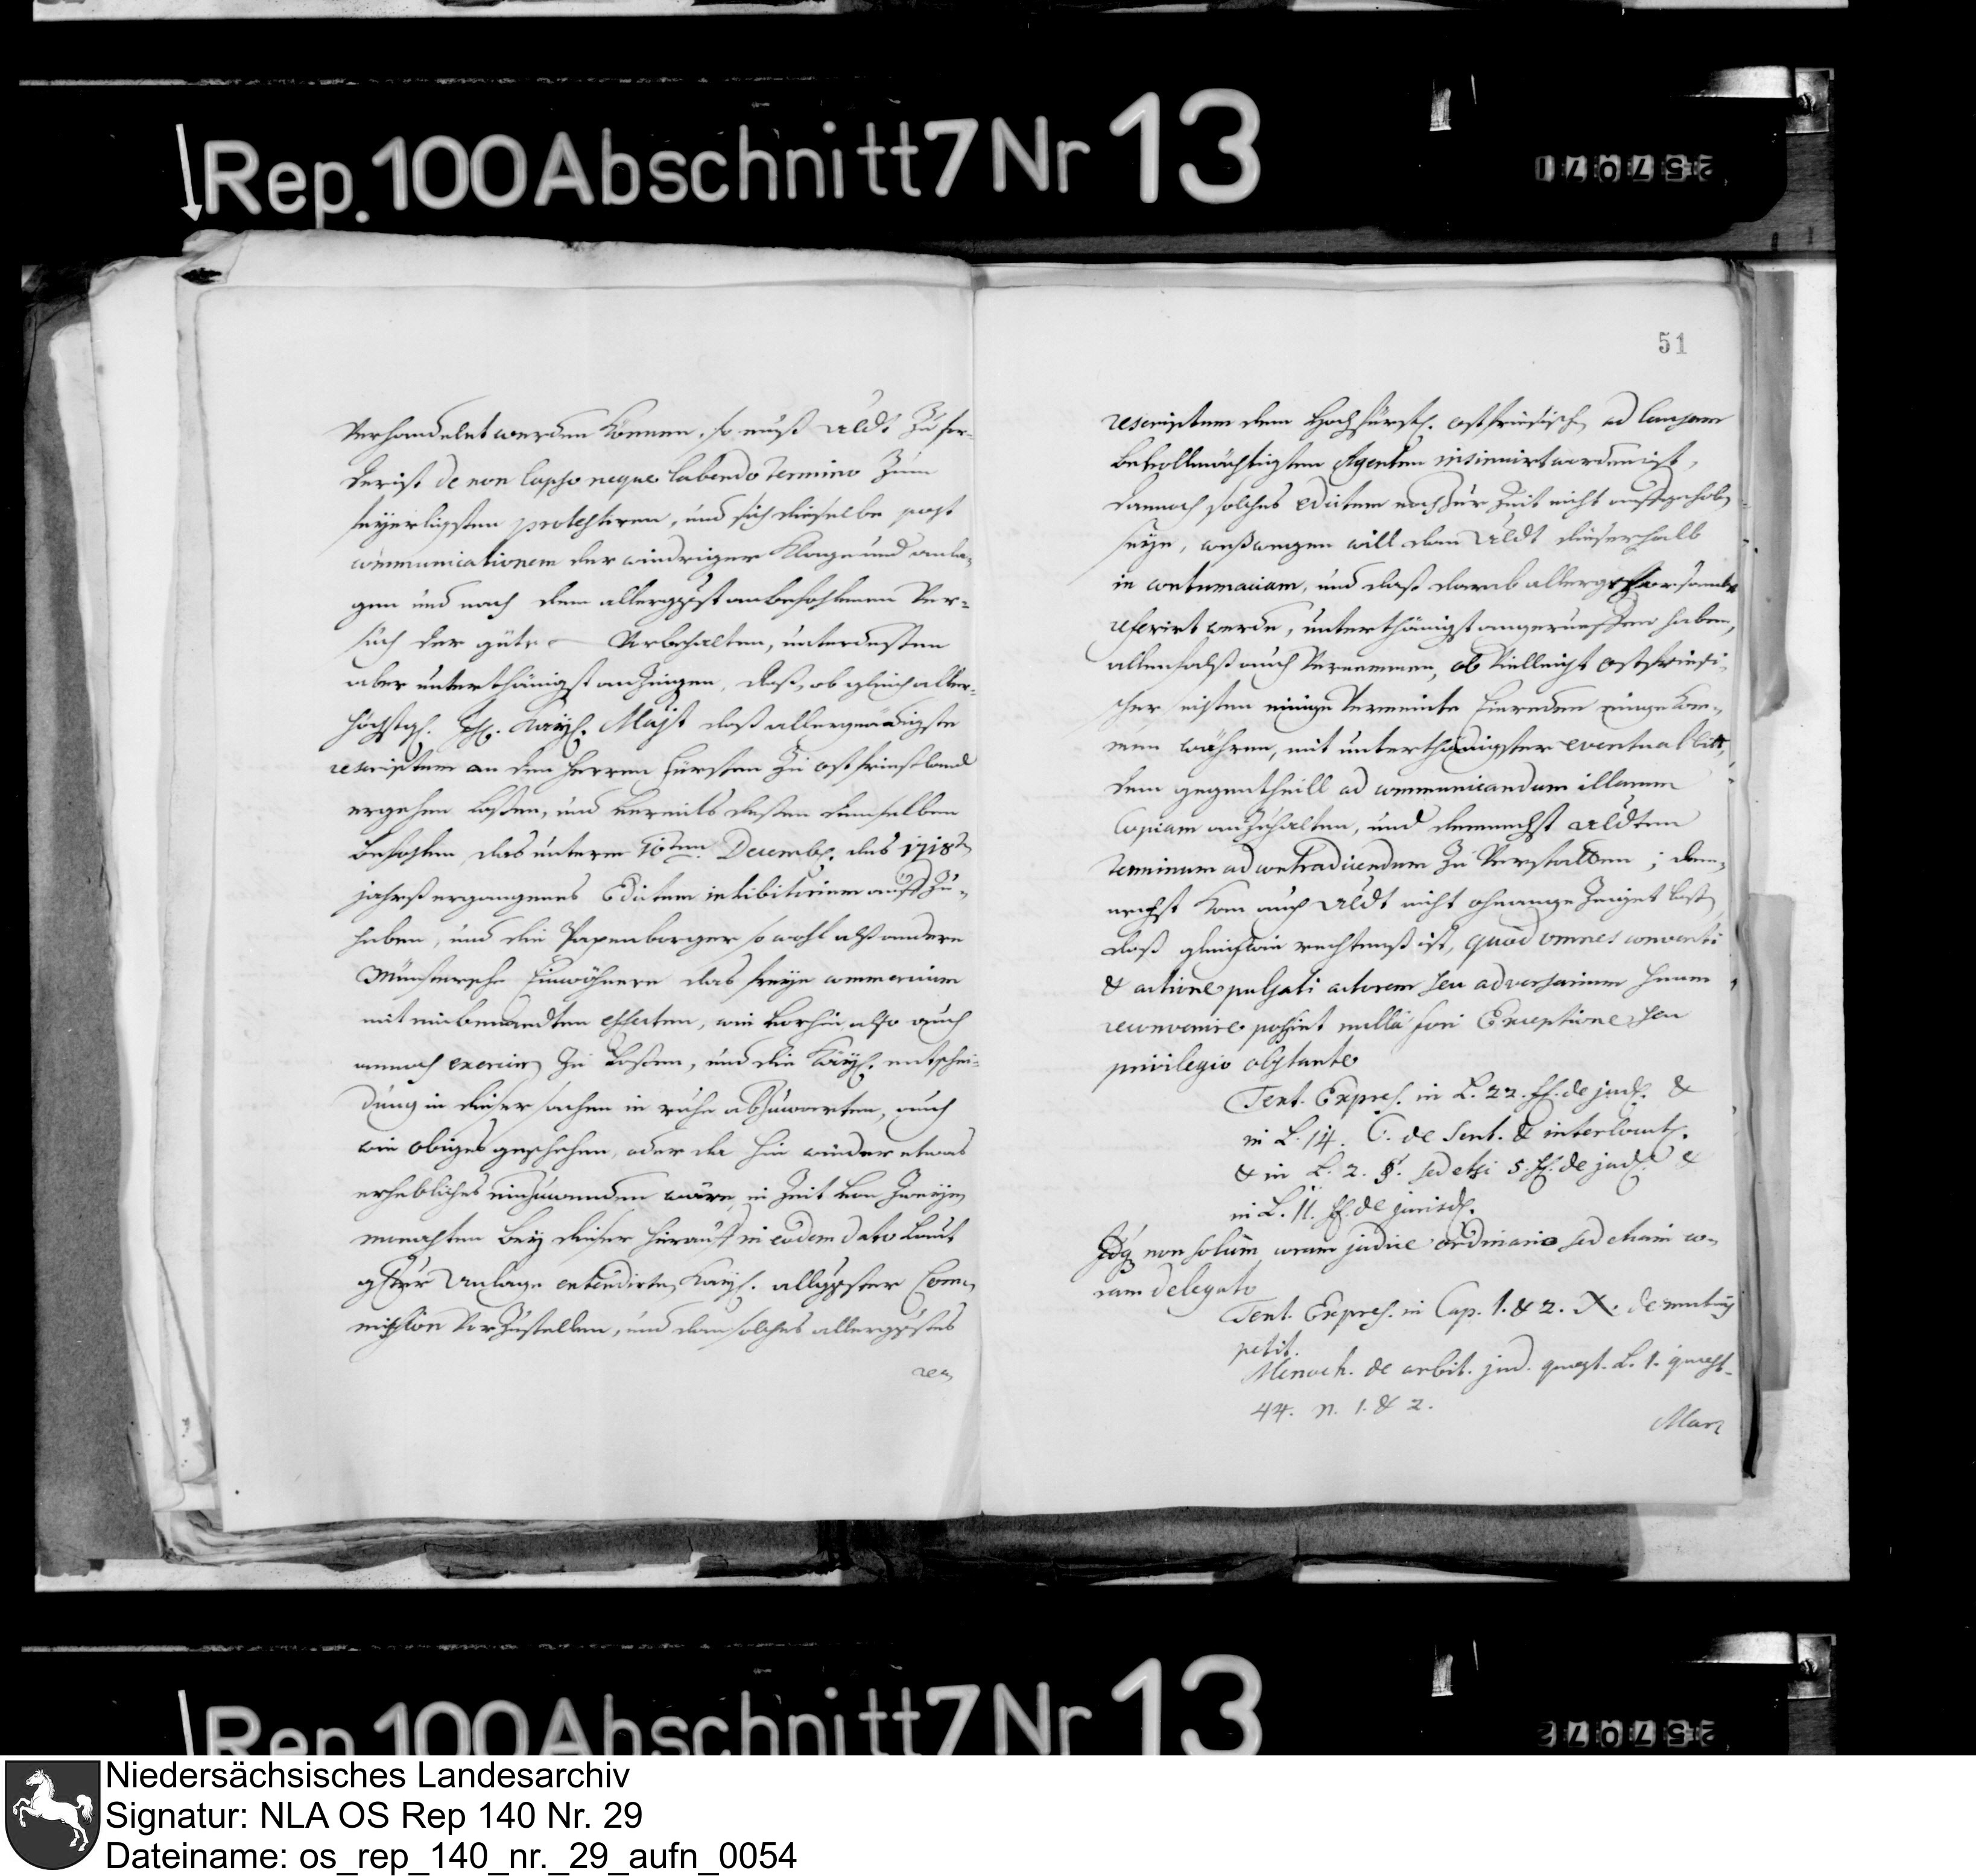 Rep. 100 Abschnitt 7 Nr 13
257071
Verhandelet werden können, so muß Aldt zu for-
derist de non lapso neque labendo termino zum
feyerligsten protestiren, und sich dieselbe post
communicationem der wiedriger Klage und anla-
gen und nach dem allerggst anbefohlenen Ver-
such der güte Vorbehalten, unterdessen
aber unterthänigst anzeigen, daß, ob gleich aller-
höchstgl. Kayl. Mayst daß allergnädigste
rescriptum an den Herren Fürsten zu ostfrießland
ergehen laßen, und vermits deßen demselben
befohlen, das unterm 16ten Decemb. des 1718t
jahrß ergangenes Edictum inhibitorium auffzu-
heben, und die Papenborger so wohl alß andere
Münstersche Einwöhnere das freye commercium
mit ... effecten, wie vorhin, also auch
annoch exerciren zu laßen, und die Kayl. entschei-
dung in dieser sachen in ruhe abzuwarten, auch
wie obiges geschehen, oder da hie wieder etwas
erhebliches einzuwenden wäre, in Zeit von zweyen
monathen bey dieser hierauff in eodem dato laut
... Anlage extendirten Kayl. allerggster Com-
mission Vorzustellen, und dan solches allerggstes
res
51
rescriptum dem Hochfürstl. ostfriesisch. ad causam
bevollmächtigten Agenten insinuirt worden ist,
dannoch solches edictum noch zur Zeit nicht auffgehob.
seye, weßwegen will dan Aldt dieserhalb
in contumaciam, und daß darab allergehorsambst
referirt werde, unterthänigst angeruffen haben,
allenfalß auch Vernemmen, ob Vielleicht ostfriesi-
scher seiten einige Vermeinte Einreden eingekom-
men währen, mit unterthänigster eventual bitt,
dem gegentheill ad communicandum illarum
Copiam anzuhalten, und demnechst Aldten
terminum ad contradicendum zu Verstatten; dem-
nechst kan auch Aldt nicht ohnangezeiget laßen
daß gleichwie rechtenß ist, quod omnes conventi
& actione pulsati actorem seu adversarium suum
reconvenire possint nulla fori Exceptione seu
privilegio obstante
Text. Expres. in L. 22. ff. de jud. &
in L. 14. C. de Sent. & interlocut.
& in L. 2. §. sed etsi 5. ff. de jud. &
in L. 11. ff. de jurisd.
Idq non solum coram judice ordinario sed etiam co-
ram delegato
Text. Expres. in Cap. 1. & 2. X. de mutuis
petit.
Menoch. de arbit. jud. quaest. L. 1. quaest.
44. n. 1. & 2.
Mar
Rep. 100 Abschnitt 7 Nr 13
257072
Niedersächsisches Landesarchiv
Signatur: NLA OS Rep 140 Nr. 29
Dateiname: os_rep_140_nr._29_aufn_0054